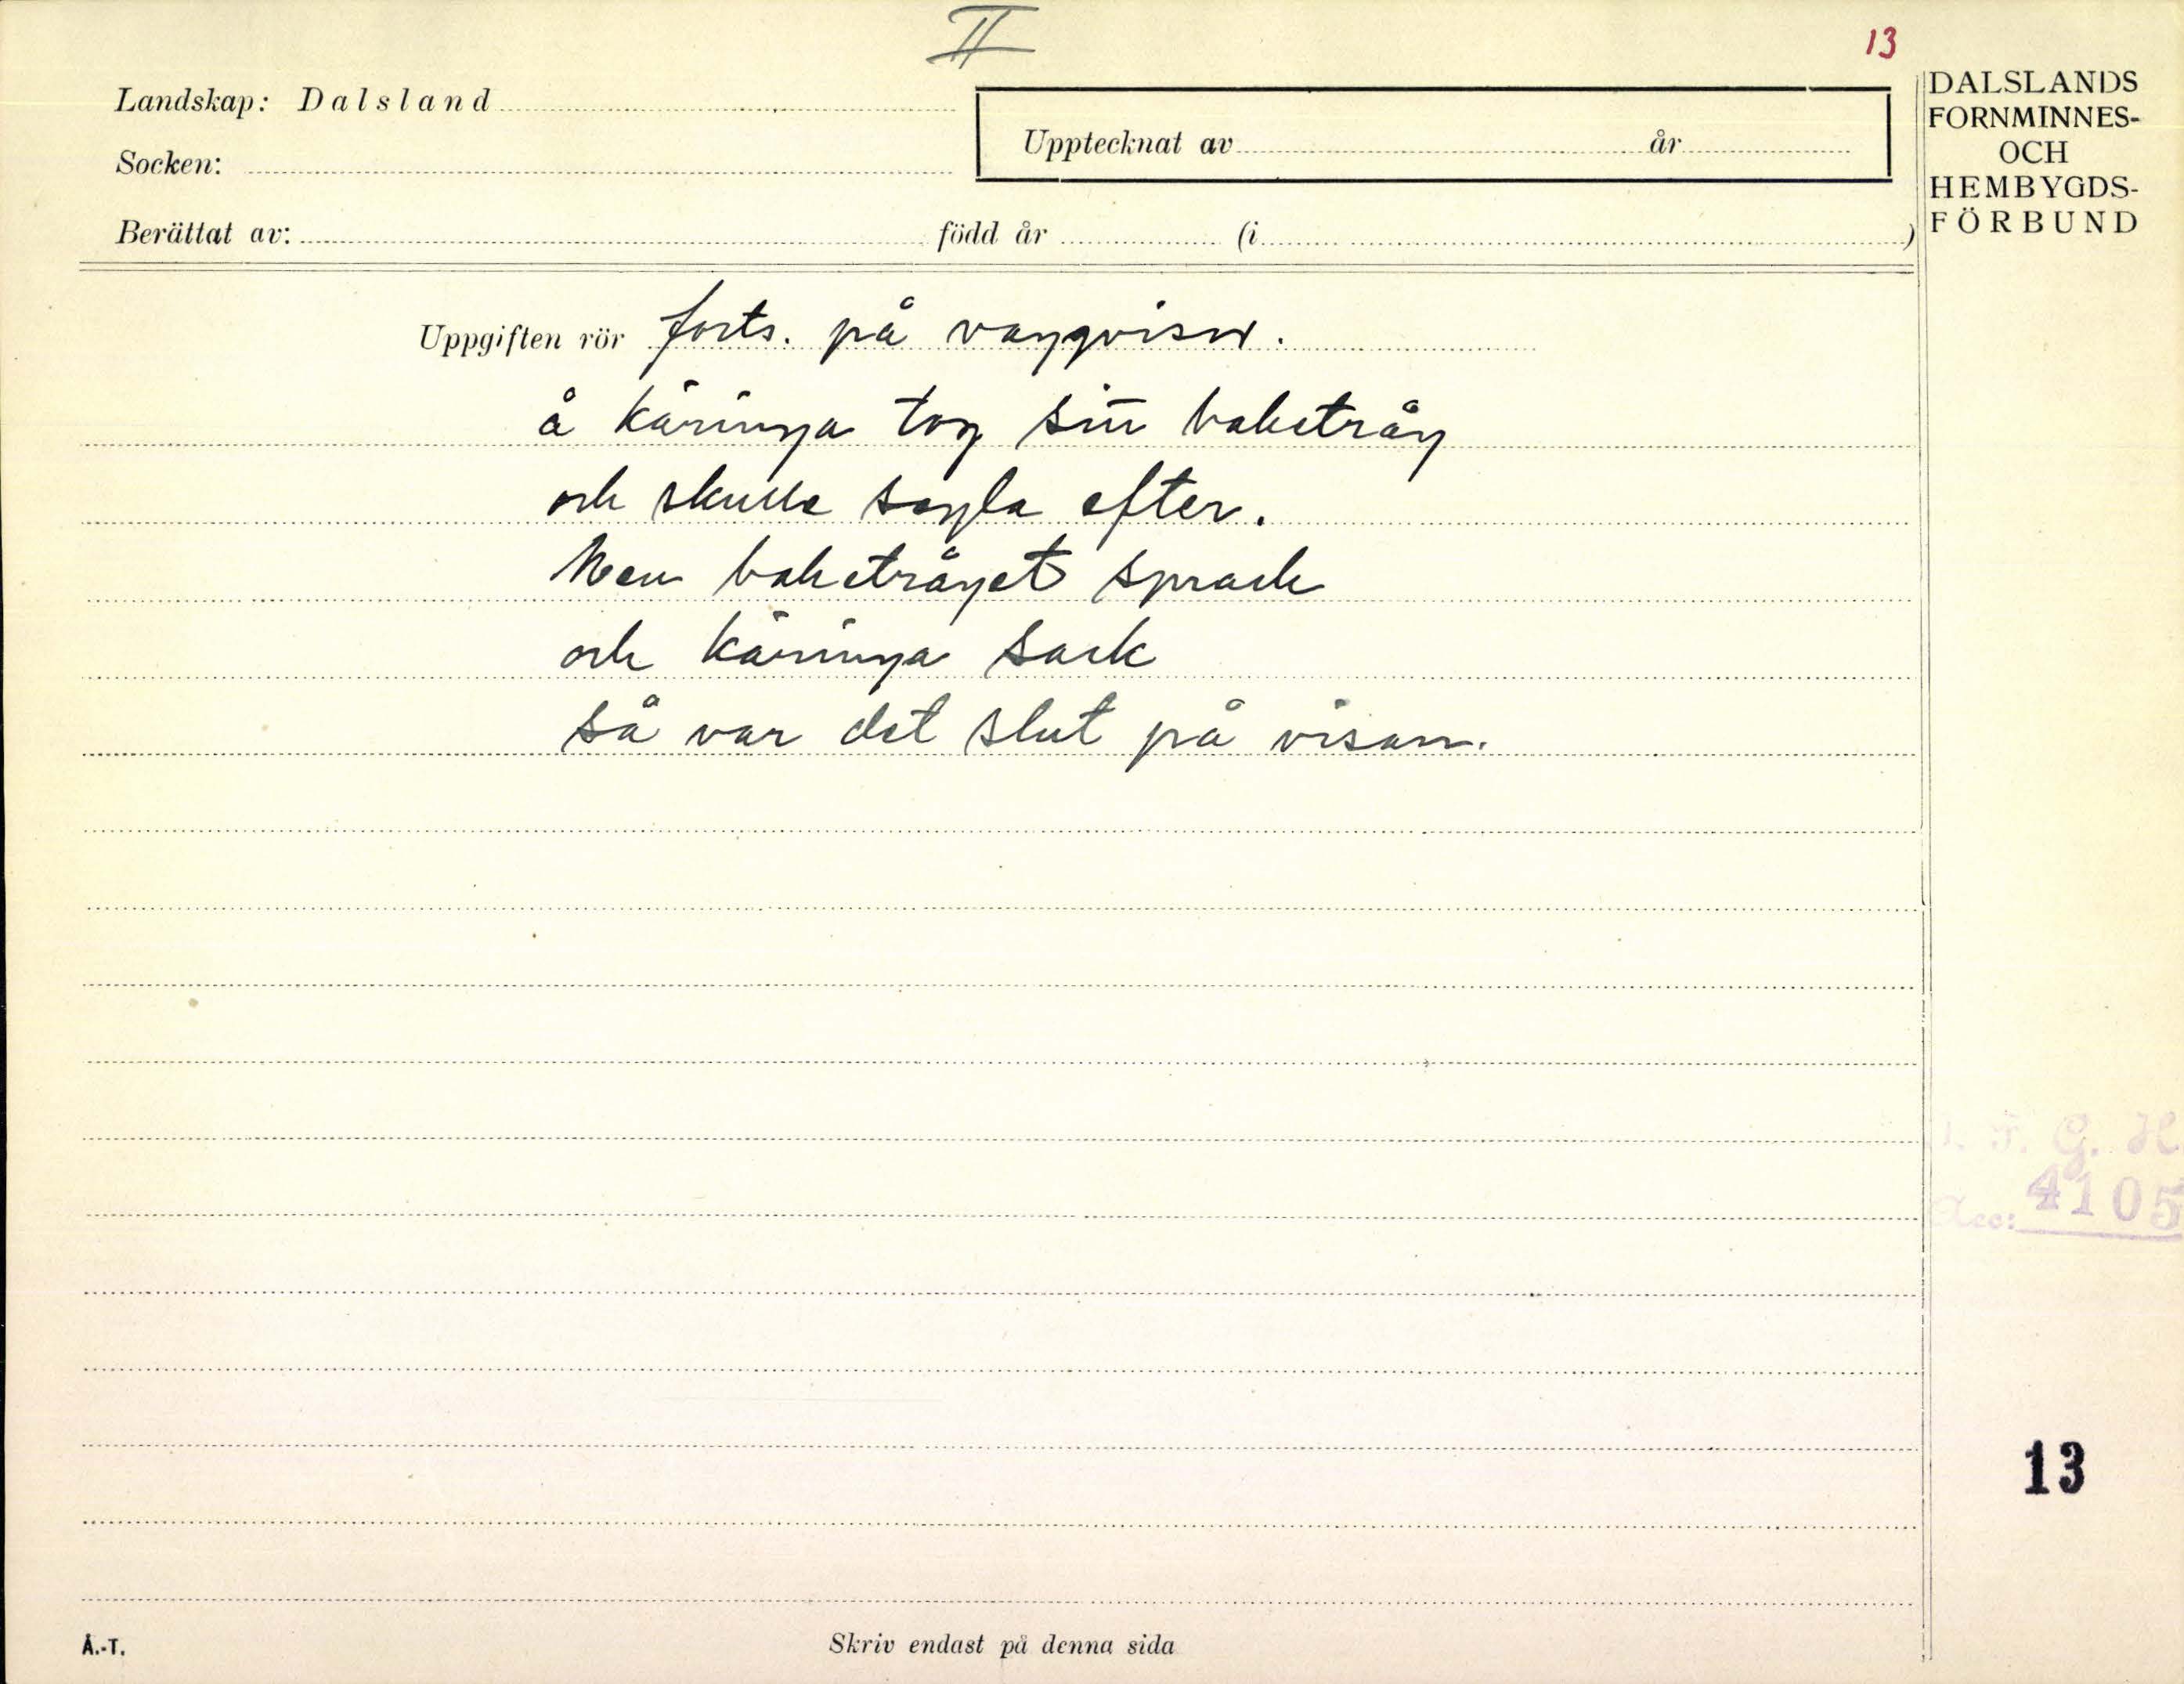 II
13
Landskap: Dalsland
Socken:
Upptecknat av år
Berättat av: född år (i )
DALSLANDS
FORNMINNES-
OCH
HEMBYGDS-
FÖRBUND
Uppgiften rör forts. på vaggvisor.
å käringa tog sin baketråg
och skulle segla efter.
Men baketråget sprack
och käringa sack
så var det slut på visan.
I. F. G. H
Acc: 4105
13
Å.-T.
Skriv endast på denna sida